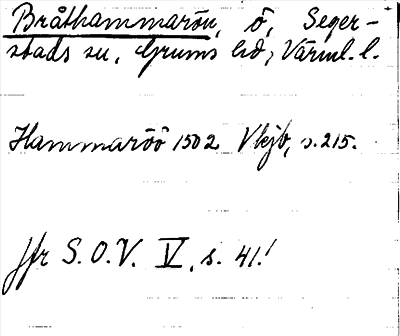 Bråthammarön, ö, Seger-
stads sn, Grums hd, Värml. l.
Hammaröö 1502 Vkjb, s. 215.
Jfr S.O.V. V, s. 41!